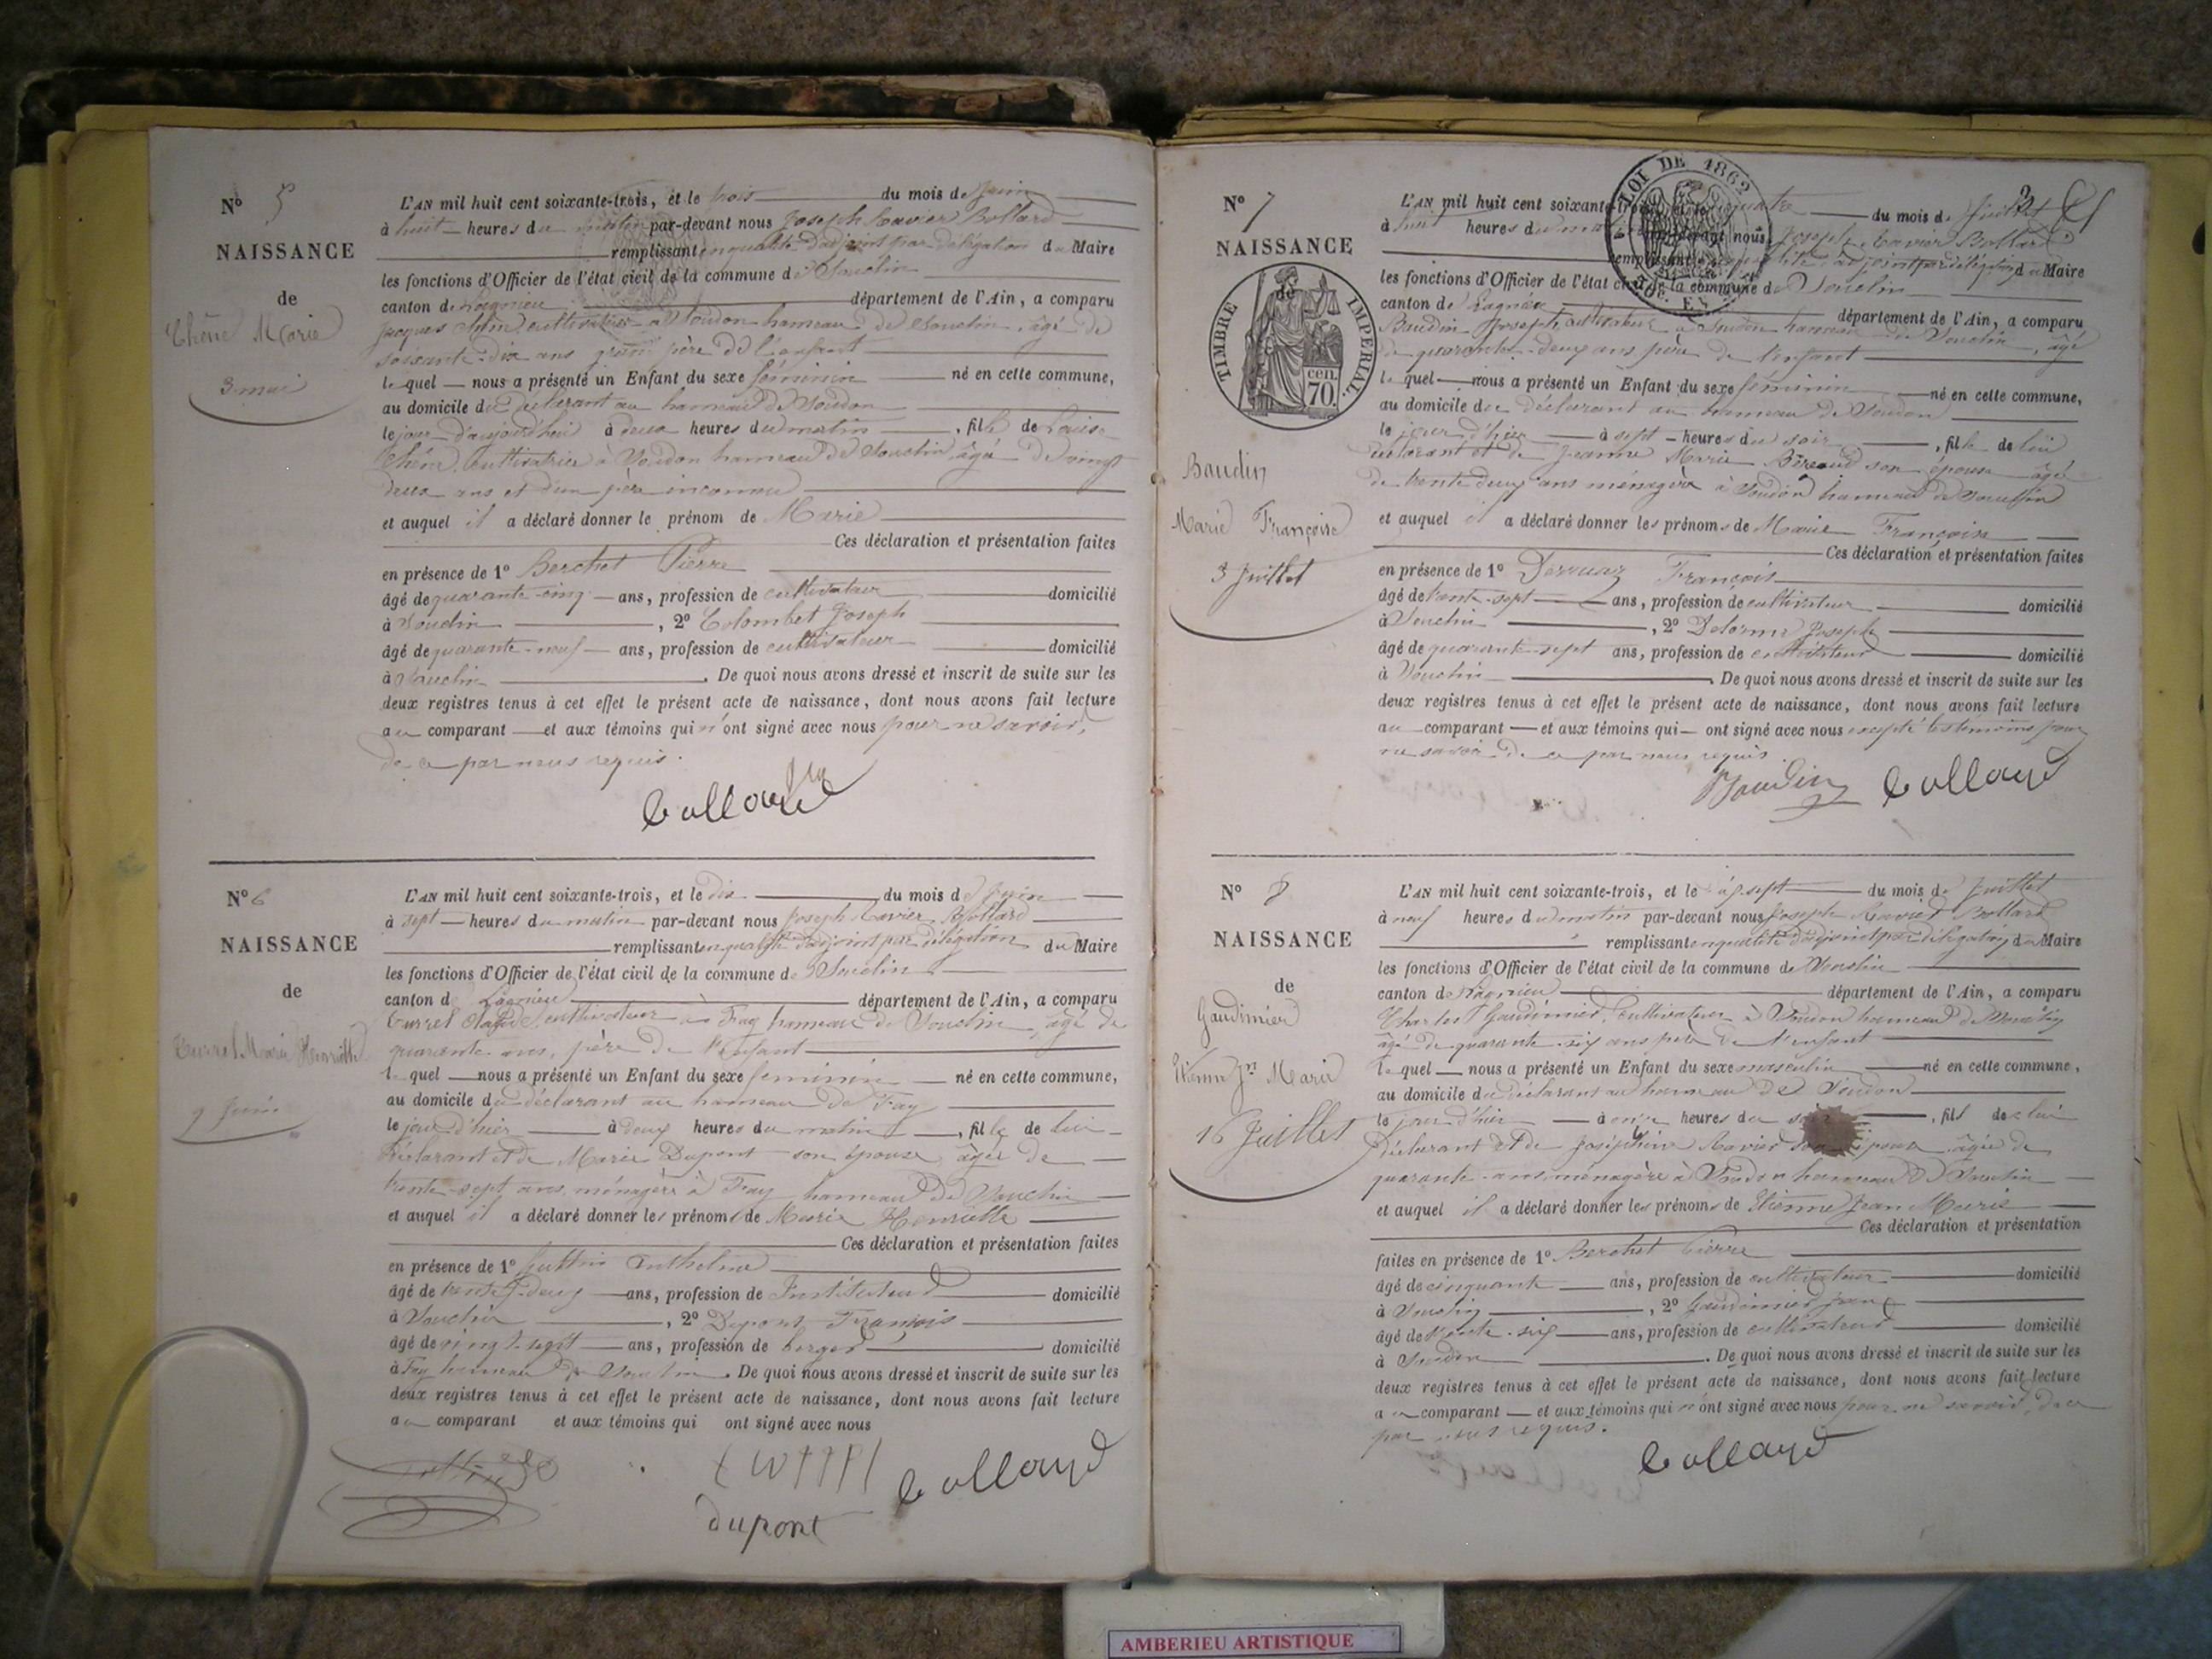 Nº 5
NAISSANCE
de
Chêne Marie
3 mai
L'AN mil huit cent soixante-trois, et le trois du mois de Juin
à huit heures du matin par-devant nous Joseph Xavier Bollard
remplissant en qualité d'adjoint par délégation du Maire
les fonctions d'Officier de l'état civil de la commune de Souclin
canton de Lagnieu département de l'Ain, a comparu
Jacques Chêne cultivateur à Soudon hameau de Souclin, âgé de
soixante-dix ans grand père de l'enfant
lequel nous a présenté un Enfant du sexe féminin né en cette commune,
au domicile du déclarant au hameau de Soudon
le jour d'aujourd'hui à deux heures du matin, fille de Louise
Chêne, cultivatrice à Soudon hameau de Souclin, âgée de vingt
deux ans et d'un père inconnu
et auquel il a déclaré donner le prénom de Marie
Ces déclaration et présentation faites
en présence de 1º Berchet Pierre
âgé de quarante-cinq ans, profession de cultivateur domicilié
à Souclin, 2º Colombet Joseph
âgé de quarante-neuf ans, profession de cultivateur domicilié
à Souclin. De quoi nous avons dressé et inscrit de suite sur les
deux registres tenus à cet effet le présent acte de naissance, dont nous avons fait lecture
au comparant et aux témoins qui n'ont signé avec nous pour ne savoir,
de ce par nous requis.
Bollard
Nº 6
NAISSANCE
de
Curret Marie Henriette
9 Juin
L'AN mil huit cent soixante-trois, et le dix du mois de Juin
à sept heures du matin par-devant nous Joseph Xavier Bollard
remplissant en qualité d'adjoint par délégation du Maire
les fonctions d'Officier de l'état civil de la commune de Souclin
canton de Lagnieu département de l'Ain, a comparu
Curret Claude, cultivateur à Fay hameau de Souclin, âgé de
quarante ans, père de l'enfant
lequel nous a présenté un Enfant du sexe féminin né en cette commune,
au domicile du déclarant au hameau de Fay
le jour d'hier à deux heures du matin, fille de lui
déclarant et de Marie Dupont son épouse âgée de
trente-sept ans, ménagère à Fay hameau de Souclin
et auquel il a déclaré donner les prénoms de Marie Henriette
Ces déclaration et présentation faites
en présence de 1º Anthelme
âgé de trente-deux ans, profession de Instituteur domicilié
à Souclin, 2º Dupont François
âgé de vingt-sept ans, profession de berger domicilié
à Fay hameau de Souclin. De quoi nous avons dressé et inscrit de suite sur les
deux registres tenus à cet effet le présent acte de naissance, dont nous avons fait lecture
au comparant et aux témoins qui ont signé avec nous
Bollard
dupont
Nº 7
NAISSANCE
de
TIMBRE IMPÉRIAL.
cen. 70.
LOI DE 1862
Baudin
Marie Françoise
3 Juillet
L'AN mil huit cent soixante-trois, et le quatre du mois de Juillet
à huit heures du matin par-devant nous Joseph Xavier Bollard
remplissant en qualité d'adjoint par délégation du Maire
les fonctions d'Officier de l'état civil de la commune de Souclin
canton de Lagnieu département de l'Ain, a comparu
Baudin Joseph, cultivateur à Soudon hameau de Souclin, âgé
de quarante-deux ans père de l'enfant
lequel nous a présenté un Enfant du sexe féminin né en cette commune,
au domicile du déclarant au hameau de Soudon
le jour d'hier à sept heures du soir, fille de lui
déclarant et de Jeanne Marie son épouse âgée
de trente deux ans ménagère à Soudon hameau de Souclin
et auquel il a déclaré donner les prénoms de Marie Françoise
Ces déclaration et présentation faites
en présence de 1º François
âgé de trente-sept ans, profession de cultivateur domicilié
à Souclin, 2º Delorme Joseph
âgé de quarante-sept ans, profession de cultivateur domicilié
à Souclin. De quoi nous avons dressé et inscrit de suite sur les
deux registres tenus à cet effet le présent acte de naissance, dont nous avons fait lecture
au comparant et aux témoins qui ont signé avec nous excepté les témoins pour
ne savoir de ce par nous requis.
Baudin Bollard
Nº 8
NAISSANCE
de
Gaudimier
Etienne Jn Marie
16 Juillet
L'AN mil huit cent soixante-trois, et le dix sept du mois de Juillet
à neuf heures du matin par-devant nous Joseph Xavier Bollard
remplissant en qualité d'adjoint par délégation du Maire
les fonctions d'Officier de l'état civil de la commune de Souclin
canton de Lagnieu département de l'Ain, a comparu
Charles Gaudimier, cultivateur à Soudon hameau de Souclin
âgé de quarante-six ans père de l'enfant
lequel nous a présenté un Enfant du sexe masculin né en cette commune,
au domicile du déclarant au hameau de Soudon
le jour d'hier à onze heures du soir, fils de lui
déclarant et de Joséphine Xavier son épouse âgée de
quarante ans ménagère à Soudon hameau de Souclin
et auquel il a déclaré donner les prénoms de Etienne Jean Marie
Ces déclaration et présentation
faites en présence de 1º Berchet Pierre
âgé de cinquante ans, profession de cultivateur domicilié
à Souclin, 2º Gaudimier Jean
âgé de trente-six ans, profession de cultivateur domicilié
à Soudon. De quoi nous avons dressé et inscrit de suite sur les
deux registres tenus à cet effet le présent acte de naissance, dont nous avons fait lecture
au comparant et aux témoins qui n'ont signé avec nous pour ne savoir de ce
par nous requis.
Bollard
AMBERIEU ARTISTIQUE